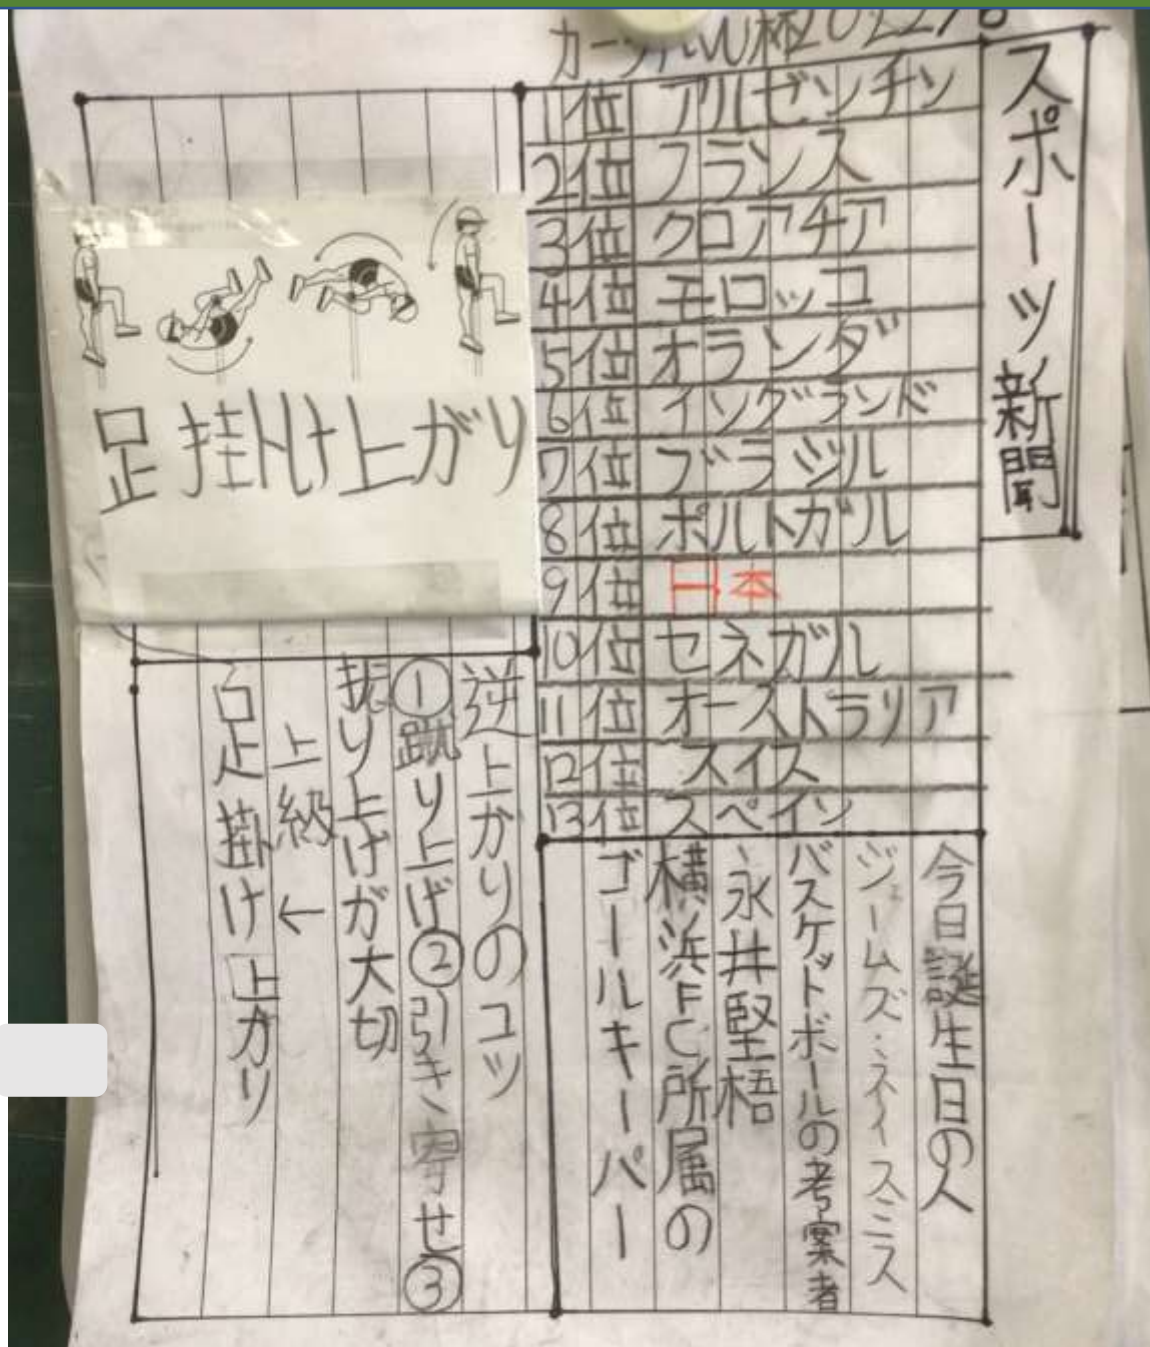 スポーツ新聞
1位 アルゼンチン
2位 フランス
3位 クロアチア
4位 モロッコ
5位 オランダ
6位 イングランド
7位 ブラジル
8位 ポルトガル
9位 日本
10位 セネガル
11位 オーストラリア
12位 スイス
13位 スペイン
今日誕生日の人
ジェームズ・ネイスミス
バスケットボールの考案者
、永井堅梧
横浜FC所属の
ゴールキーパー
足掛け上がり
逆上がりのコツ
①蹴り上げ②引き寄せ③
振り上げが大切
上級←
足掛け上がり